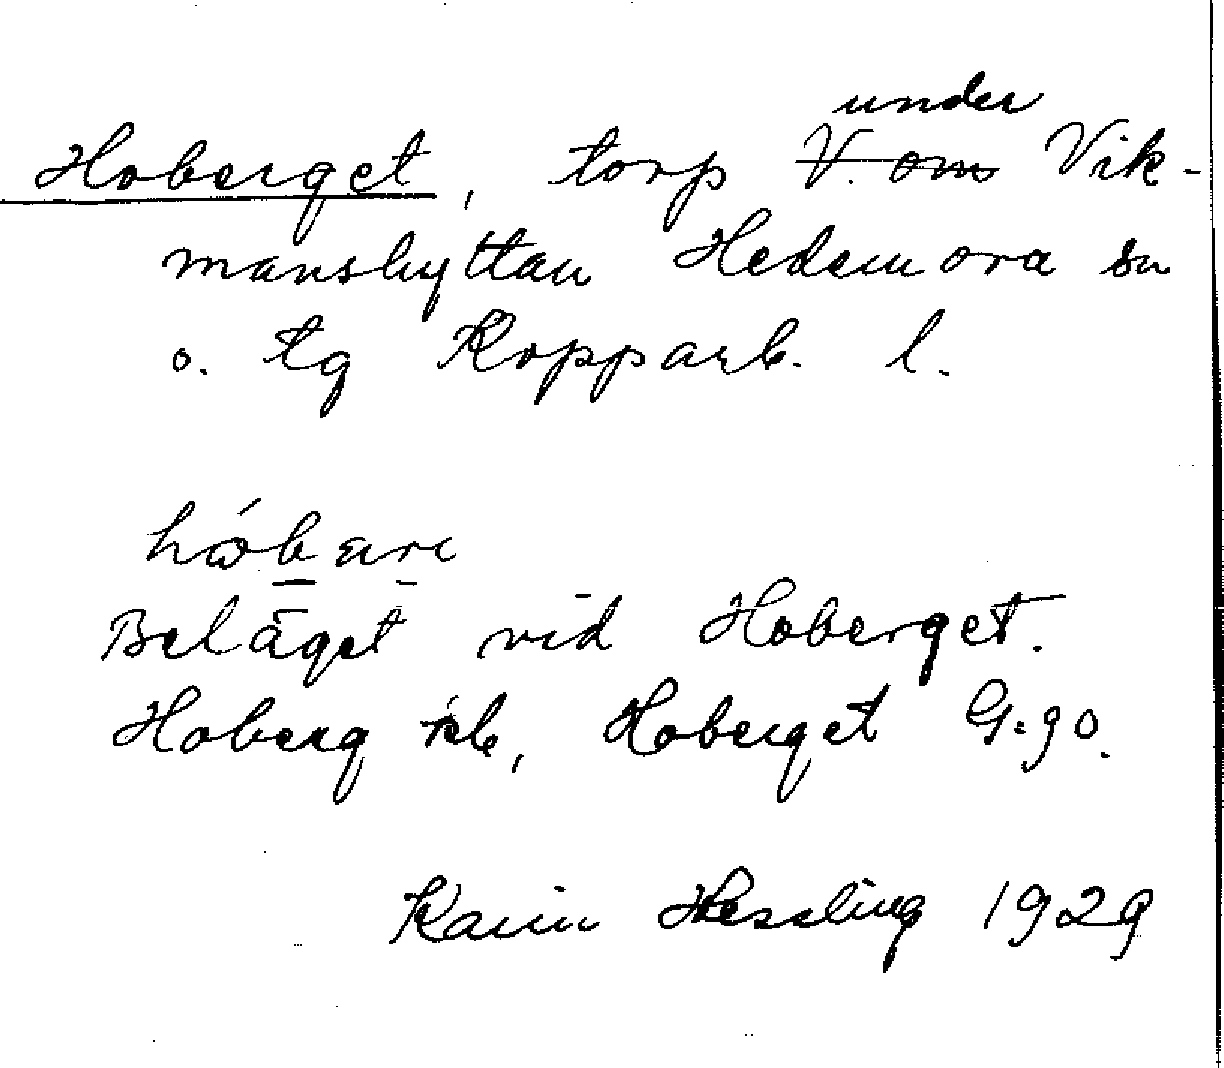 under
Hoberget, torp V. om Vik-
manshyttan Hedemora sn
o. tg Kopparb. l.
Beläget vid Hoberget.
Hoberg rek, Hoberget G. go.
Karin Hessling 1929